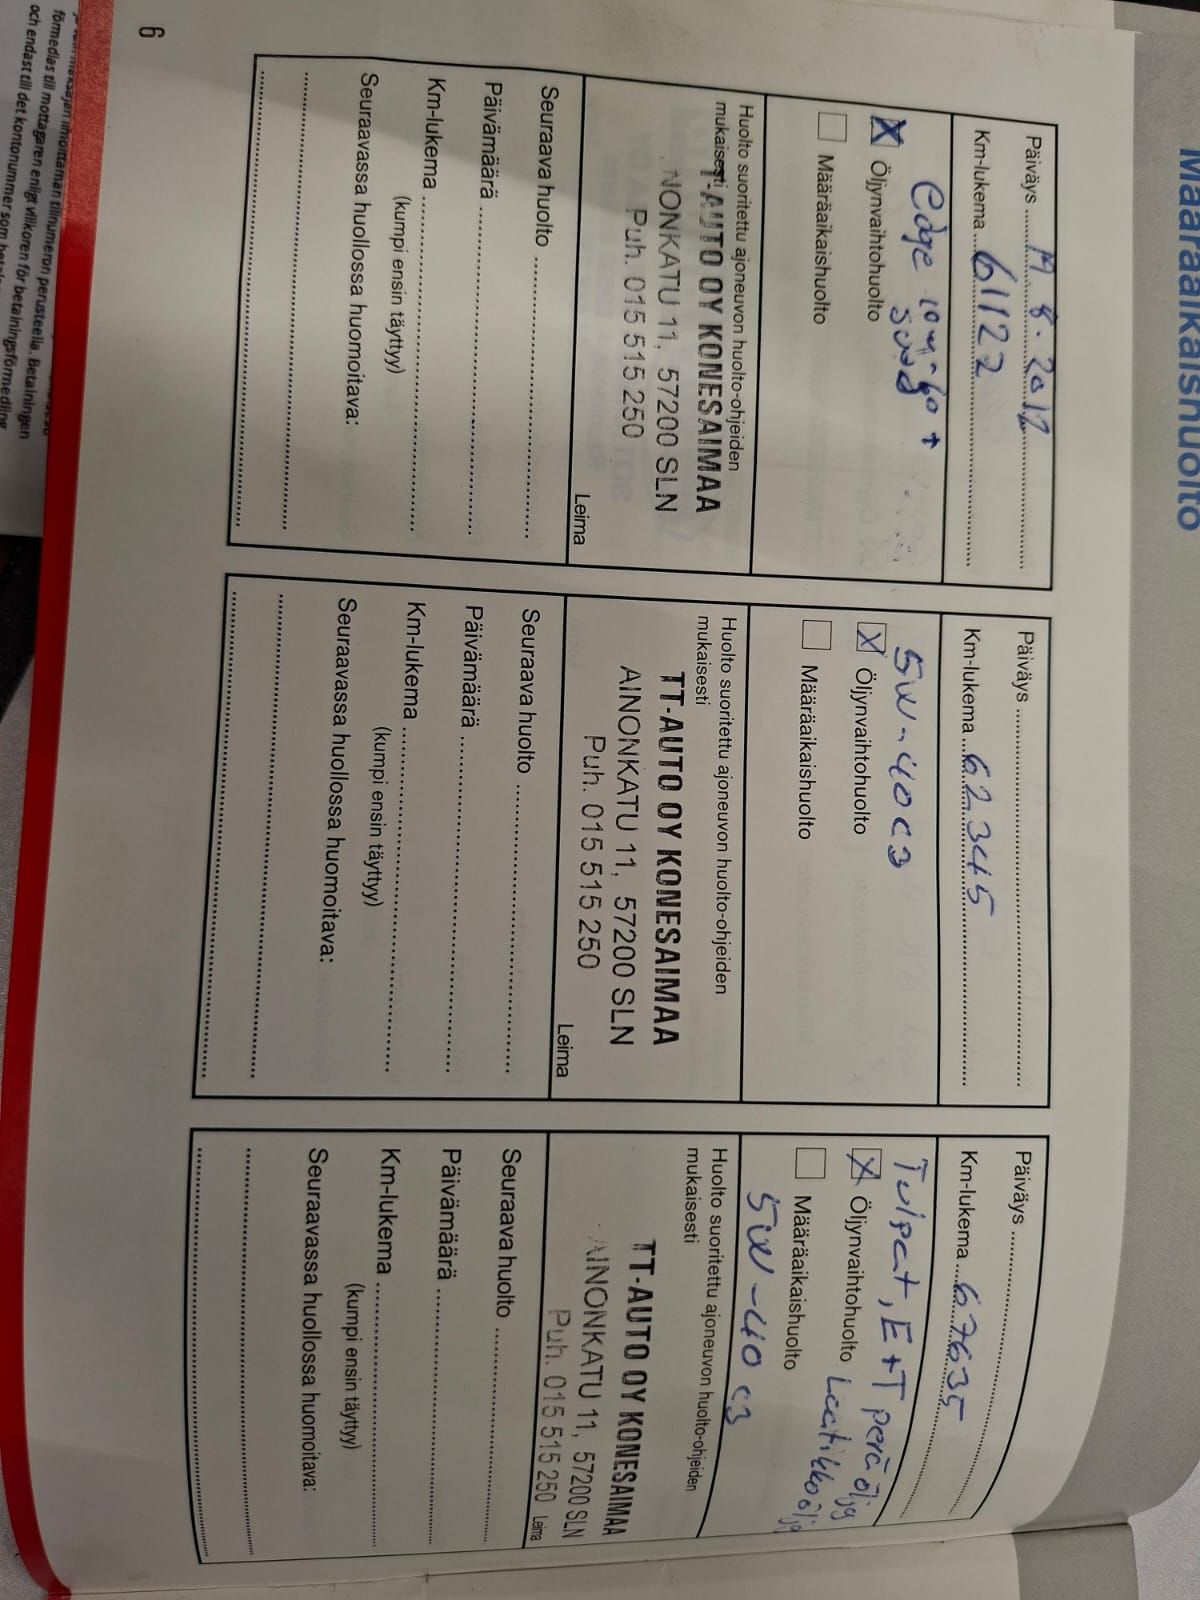 Määräaikaishuolto
Päiväys 8. 2012
Km-lukema 61122
Edge 10W-60 +
X Öljynvaihtohuolto
Määräaikaishuolto
Huolto suoritettu ajoneuvon huolto-ohjeiden
mukaisesti
T-AUTO OY KONESAIMAA
NONKATU 11, 57200 SLN
Puh. 015 515 250
Leima
Seuraava huolto
Päivämäärä
Km-lukema
(kumpi ensin täyttyy)
Seuraavassa huollossa huomoitava:
Päiväys
Km-lukema 62345
5W-40 C3
X Öljynvaihtohuolto
Määräaikaishuolto
Huolto suoritettu ajoneuvon huolto-ohjeiden
mukaisesti
TT-AUTO OY KONESAIMAA
AINONKATU 11, 57200 SLN
Puh. 015 515 250
Leima
Seuraava huolto
Päivämäärä
Km-lukema
(kumpi ensin täyttyy)
Seuraavassa huollossa huomoitava:
Päiväys
Km-lukema 67635
Tulpat, E+T peräöljy
X Öljynvaihtohuolto Laatikkoöljy
Määräaikaishuolto
5W-40 C3
Huolto suoritettu ajoneuvon huolto-ohjeiden
mukaisesti
TT-AUTO OY KONESAIMAA
AINONKATU 11, 57200 SLN
Puh. 015 515 250 Leima
Seuraava huolto
Päivämäärä
Km-lukema
(kumpi ensin täyttyy)
Seuraavassa huollossa huomoitava:
6
ilmoittaman tilinumeron perusteella. Betalningen
förmedlas till mottagaren enligt villkoren för betalningsförmedling
och endast till det kontonummer som